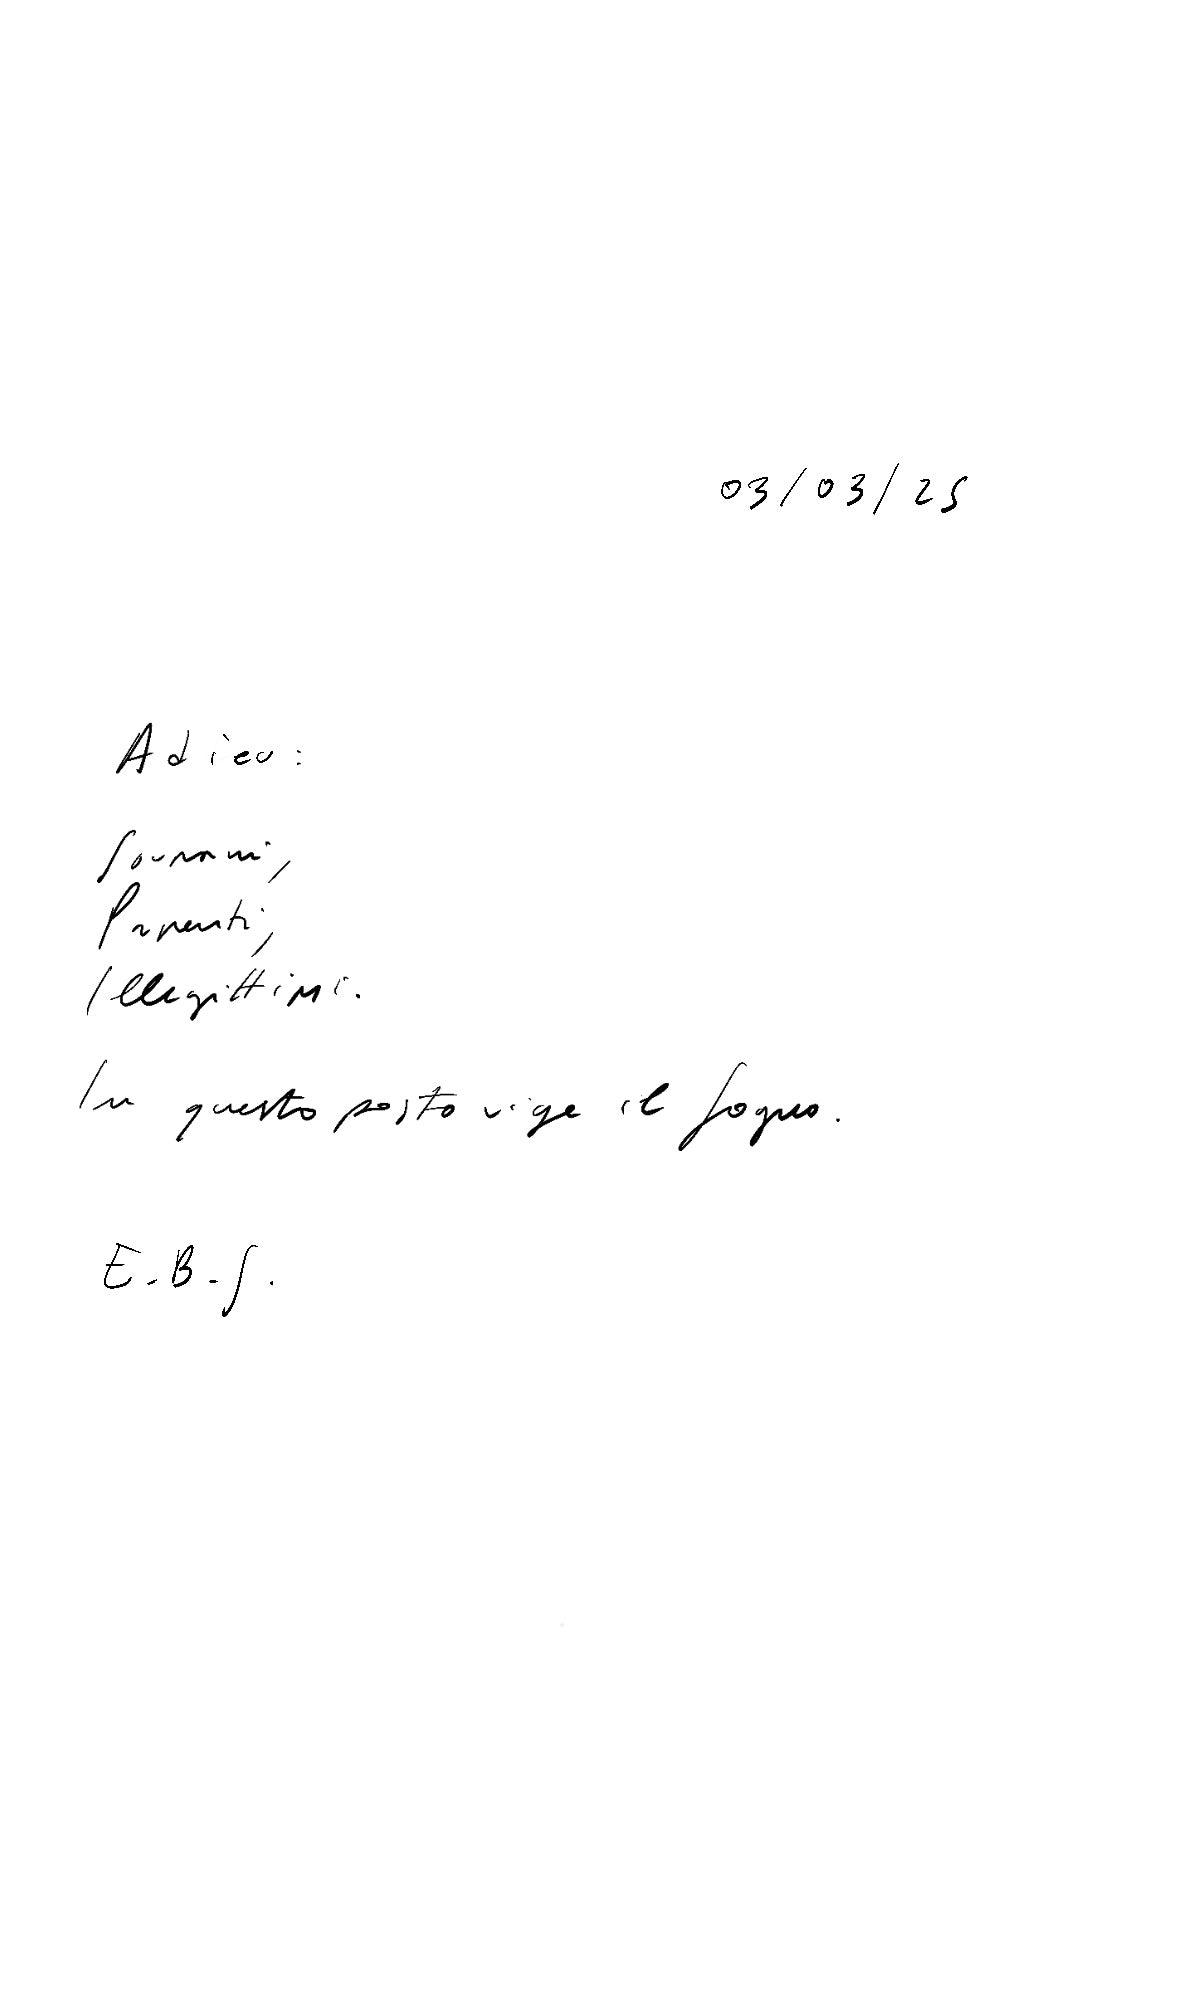 03/03/25
Adieu:
Sovrani,
Parenti,
Illegittimi.
In questo posto vige il Sogno.
E.B.S.